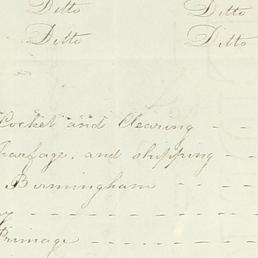 Ditto Ditto
Ditto Ditto
Cocket and Clearing - -
and shipping - -
Birmingham - - - -
- - - - - - - -
Primage - - - - - - -